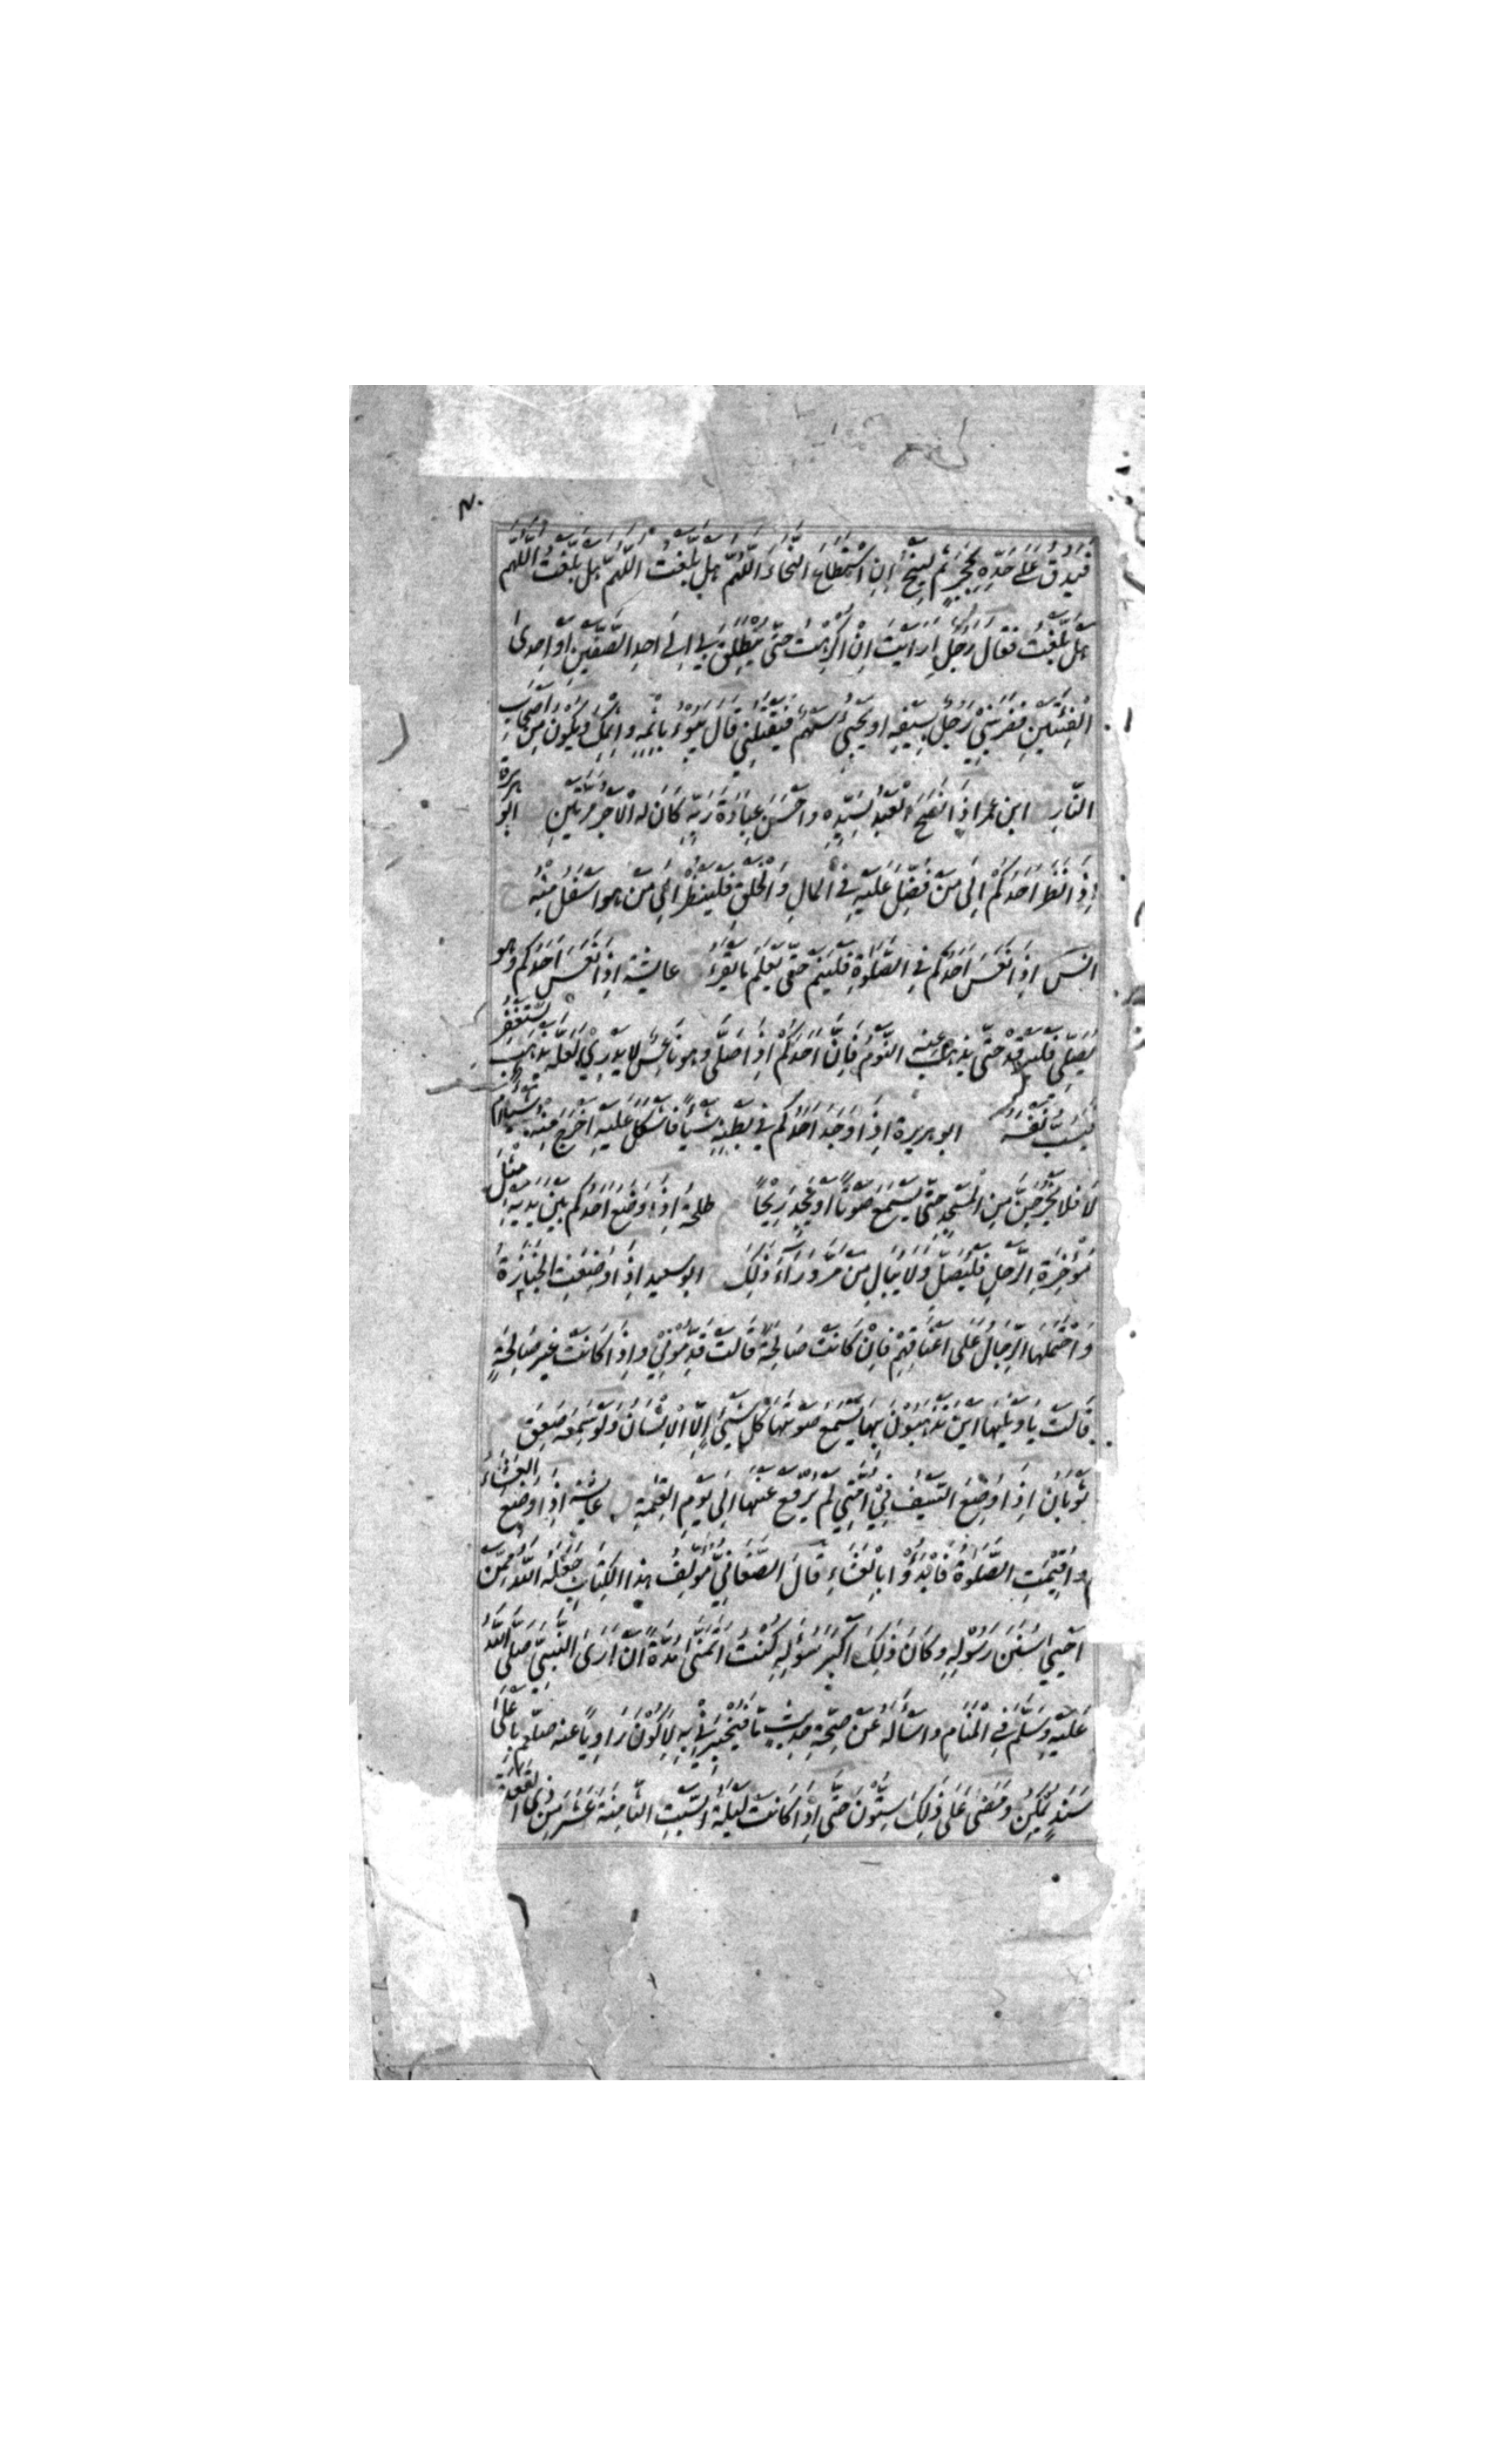 فَيَدُقُّ عَلَى حَدِّهِ بِحَجَرٍ ثُمَّ لِيَنْجُ إِنِ اسْتَطَاعَ النَّجَاءَ اللَّهُمَّ هَلْ بَلَّغْتُ اللَّهُمَّ هَلْ بَلَّغْتُ اللَّهُمَّ
هَلْ بَلَّغْتُ فَقَالَ رَجُلٌ اَرَاَيْتَ اِنْ اُكْرِهْتُ حَتّٰى يُنْطَلَقَ بِي اِلٰى اَحَدِ الصَّفَّيْنِ اَوْ اِحْدَى
الْفِئَتَيْنِ فَضَرَبَنِي رَجُلٌ بِسَيْفِهِ اَوْ يَجِيءُ سَهْمٌ فَيَقْتُلُنِي قَالَ يَبُوءُ بِاِثْمِهِ وَاِثْمِكَ وَيَكُونُ مِنْ اَصْحَابِ
النَّارِ ابن عمر اِذَا نَصَحَ الْعَبْدُ لِسَيِّدِهِ وَاَحْسَنَ عِبَادَةَ رَبِّهِ كَانَ لَهُ الْاَجْرُ مَرَّتَيْنِ ابو هريرة
اِذَا نَظَرَ اَحَدُكُمْ اِلَى مَنْ فُضِّلَ عَلَيْهِ فِي الْمَالِ وَالْخَلْقِ فَلْيَنْظُرْ اِلَى مَنْ هُوَ اَسْفَلُ مِنْهُ
انس اِذَا نَعَسَ اَحَدُكُمْ فِي الصَّلٰوةِ فَلْيَنَمْ حَتّٰى يَعْلَمَ مَا يَقْرَأُ عايشة اِذَا نَعَسَ اَحَدُكُمْ وَهُوَ
يُصَلِّي فَلْيَرْقُدْ حَتّٰى يَذْهَبَ عَنْهُ النَّوْمُ فَاِنَّ اَحَدَكُمْ اِذَا صَلَّى وَهُوَ نَاعِسٌ لَا يَدْرِي لَعَلَّهُ يَذْهَبُ يَسْتَغْفِرُ
فَيَسُبَّ نَفْسَهُ ابو هريرة اِذَا وَجَدَ اَحَدُكُمْ فِي بَطْنِهِ شَيْئًا فَاَشْكَلَ عَلَيْهِ اَخَرَجَ مِنْهُ شَيْءٌ اَمْ
لَا فَلَا يَخْرُجَنَّ مِنَ الْمَسْجِدِ حَتّٰى يَسْمَعَ صَوْتًا اَوْ يَجِدَ رِيحًا طلحة اِذَا وَضَعَ اَحَدُكُمْ بَيْنَ يَدَيْهِ مِثْلَ
مُؤْخِرَةِ الرَّحْلِ فَلْيُصَلِّ وَلَا يُبَالِ مَنْ مَرَّ وَرَاءَ ذٰلِكَ ابو سعيد اِذَا وُضِعَتِ الْجَنَازَةُ
وَاحْتَمَلَهَا الرِّجَالُ عَلَى اَعْنَاقِهِمْ فَاِنْ كَانَتْ صَالِحَةً قَالَتْ قَدِّمُوْنِي وَاِذَا كَانَتْ غَيْرَ صَالِحَةٍ
قَالَتْ يَا وَيْلَهَا اَيْنَ تَذْهَبُوْنَ بِهَا يَسْمَعُ صَوْتَهَا كُلُّ شَيْءٍ اِلَّا الْاِنْسَانَ وَلَوْ سَمِعَهُ صَعِقَ
ثوبان اِذَا وُضِعَ السَّيْفُ فِيْ اُمَّتِي لَمْ يُرْفَعْ عَنْهَا اِلَى يَوْمِ الْقِيٰمَةِ عايشة اِذَا وُضِعَ الْعَشَاءُ
وَاُقِيْمَتِ الصَّلٰوةُ فَابْدَؤُوْا بِالْعَشَاءِ قَالَ الصَّغَانِيُّ مُؤَلِّفُ هٰذَا الْكِتَابِ جَعَلَهُ اللّٰهُ مِمَّنْ
اَحْيٰى سُنَنَ رَسُوْلِهِ وَكَانَ ذٰلِكَ اَكْبَرَ سُؤْلِهِ كُنْتُ اَتَمَنّٰى مُدَّةً اَنْ اَرَى النَّبِيَّ صَلَّى اللّٰهُ
عَلَيْهِ وَسَلَّمَ فِي الْمَنَامِ وَاَسْاَلَهُ عَنْ صِحَّةِ حَدِيثٍ مَا فَيُخْبِرَنِيْ بِهِ لِاَكُوْنَ رَاوِيًا عَنْهُ صلعم بِاَعْلَى
سَنَدٍ يُمْكِنُ وَمَضَى عَلَى ذٰلِكَ سِتُّوْنَ حَتّٰى اِذَا كَانَتْ لَيْلَةُ السَّبْتِ الثَّامِنَةَ عَشَرَ مِنْ ذِي الْقَعْدَةِ